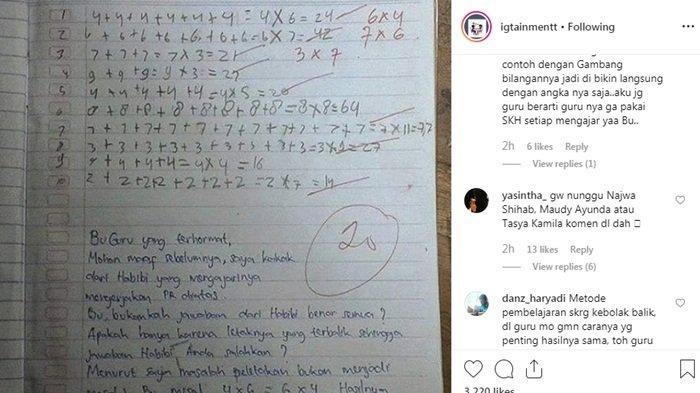 1 4+4+4+4+4+4 = 4x6 = 24 6x4
2 6+6+6+6+6+6+6=6x7=42 7x6
3 7+7+7=7x3=21 3x7
4 9+9+9=9x3=27
5 4+4+4+4+4=4x5=20
6 8+8+8+8+8+8+8+8=8x8=64
7 7+7+7+7+7+7+7+7+7+7+7=7x11=77
8 3+3+3+3+3+3+3+3+3=3x9=27
9 4+4+4+4=4x4=16
10 2+2+2+2+2+2+2=2x7=14
20
Bu Guru yang terhormat,
Mohon maaf sebelumnya, saya kakak
dari Habibi yang mengajarinya
mengerjakan PR diatas.
Bu, bukankah jawaban dari Habibi benar semua?
Apakah hanya karena letaknya yang terbalik sehingga
jawaban Habibi Anda salahkan?
Menurut saya masalah peletakan bukan menjadi
Bu misal 4x6=6x4 Hasilnya
igtainmentt • Following
contoh dengan Gambang
bilangannya jadi di bikin langsung
dengan angka nya saja..aku jg
guru berarti guru nya ga pakai
SKH setiap mengajar yaa Bu..
2h 6 likes Reply
View replies (1)
yasintha_ gw nunggu Najwa
Shihab, Maudy Ayunda atau
Tasya Kamila komen dl dah
2h 13 likes Reply
View replies (6)
danz_haryadi Metode
pembelajaran skrg kebolak balik,
dl guru mo gmn caranya yg
penting hasilnya sama, toh guru
3,220 likes